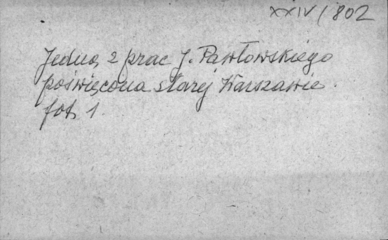 XXIV/802
Jedna z prac J. Pawłowskiego
poświęcona starej Warszawie.
fot. 1.